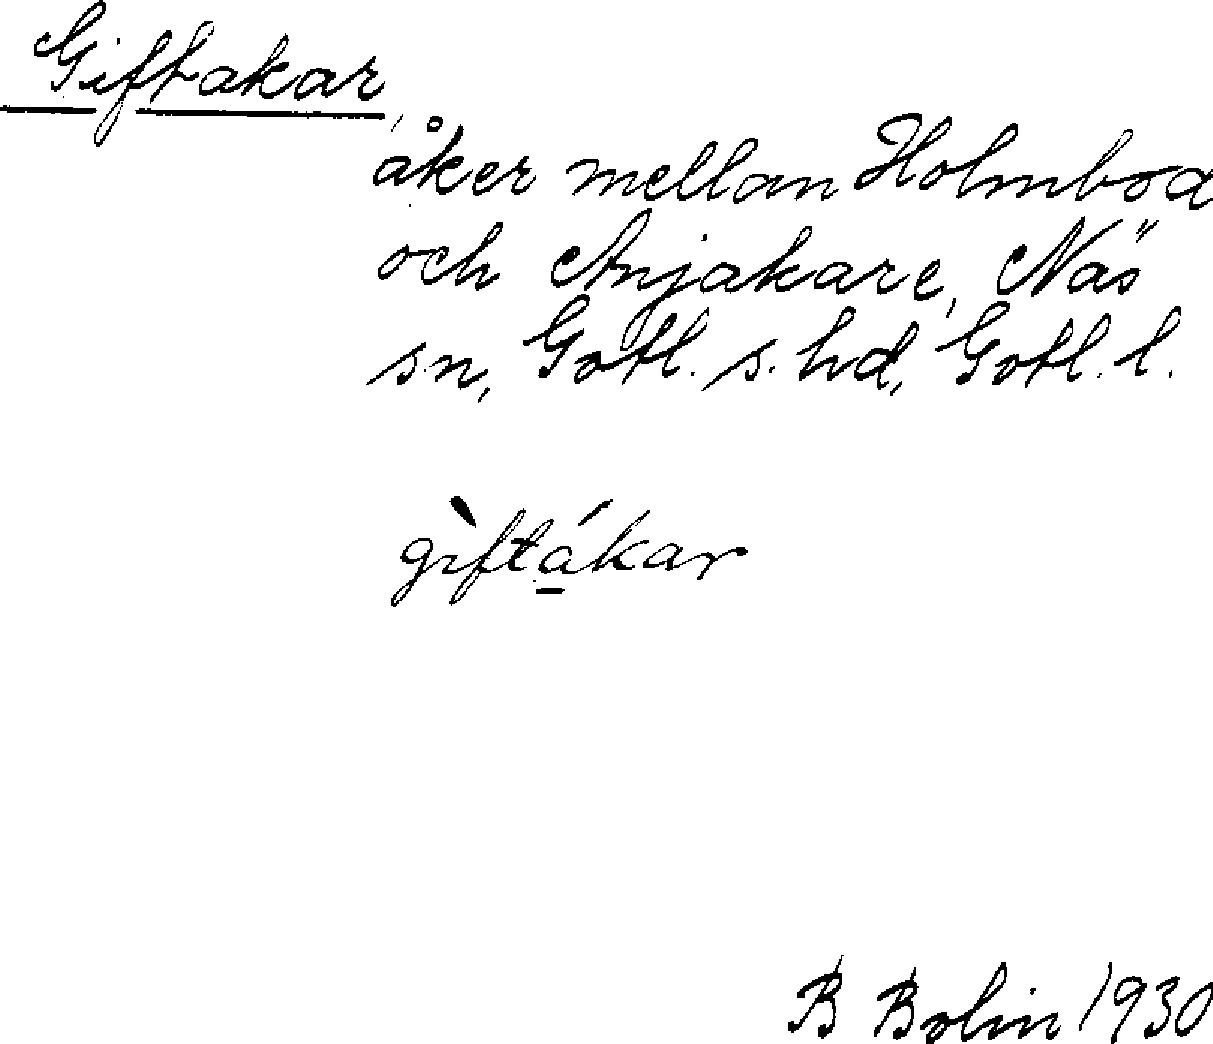 Giftakar,
åker mellan Holmboa
och Anjakare, Näs
sn, Gotl. s. hd, Gotl. l.
gìftákar
B Bolin 1930